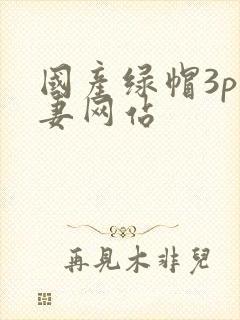 國產绿帽3p
妻网站
再見木非兒